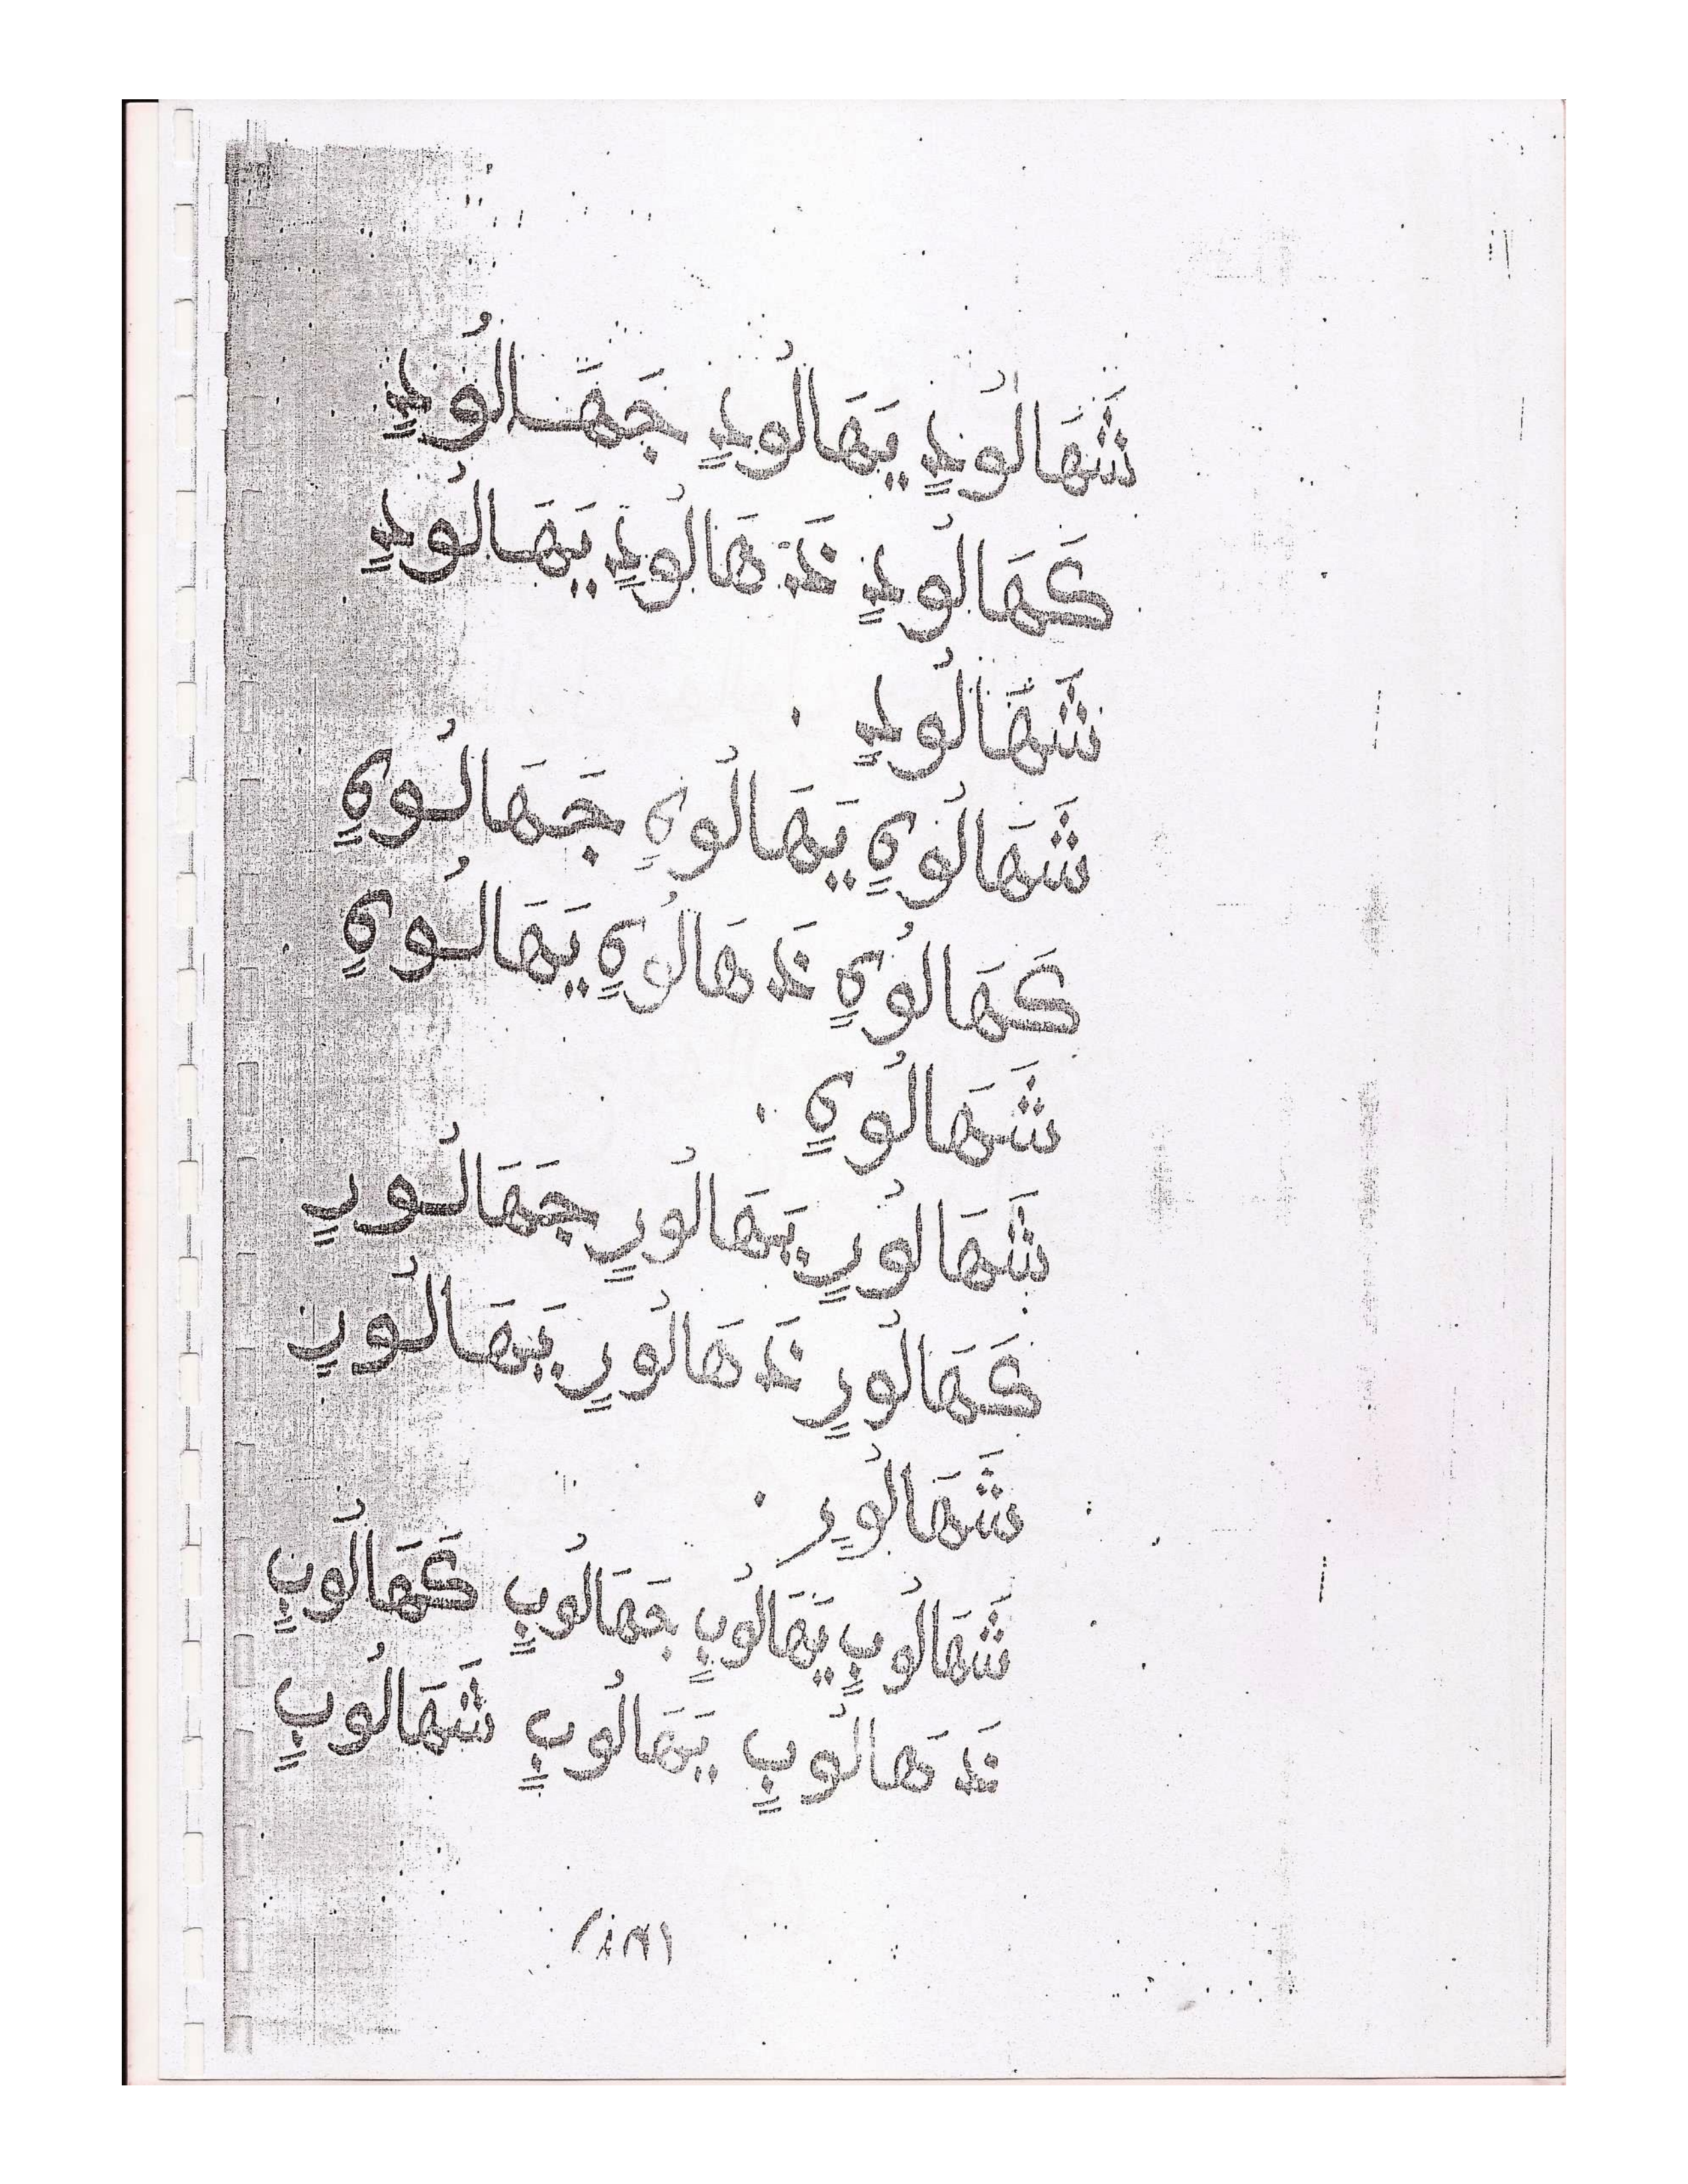 شَهَالُودٍ يَهَالُودٍ جَهَالُودٍ
كَهَالُودٍ نَدَ هَالُودٍ يَهَالُودٍ
شَهَالُودٍ .
شَهَالُويٍ يَهَالُويٍ جَهَالُويٍ
كَهَالُويٍ نَدَ هَالُويٍ يَهَالُويٍ
شَهَالُويٍ .
شَهَالُورٍ يَهَالُورٍ جَهَالُورٍ
كَهَالُورٍ نَدَ هَالُورٍ يَهَالُورٍ
شَهَالُورٍ .
شَهَالُوبٍ يَهَالُوبٍ جَهَالُوبٍ كَهَالُوبٍ
نَدَ هَالُوبٍ يَهَالُوبٍ شَهَالُوبٍ